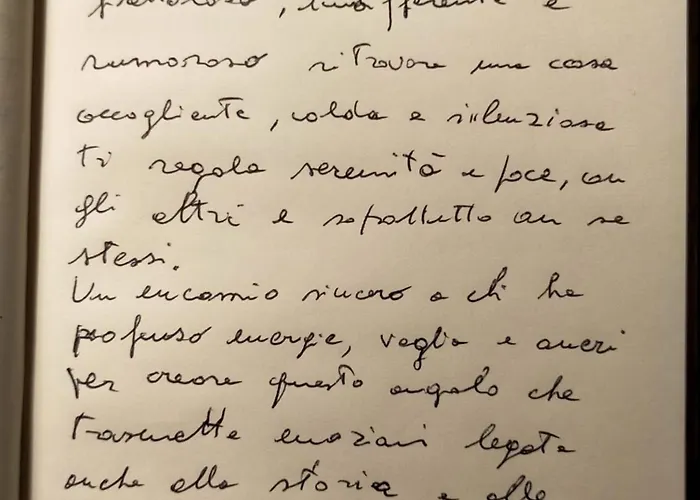 , indifferente e
rumoroso ritrovare una casa
accogliente, calda e silenziosa
ti regala serenità e pace, con
gli altri e soprattutto con se
stessi.
Un encomio sincero a chi ha
profuso energie, voglia e averi
per creare questo angolo che
trasmette emozioni legate
anche alla storia e alle